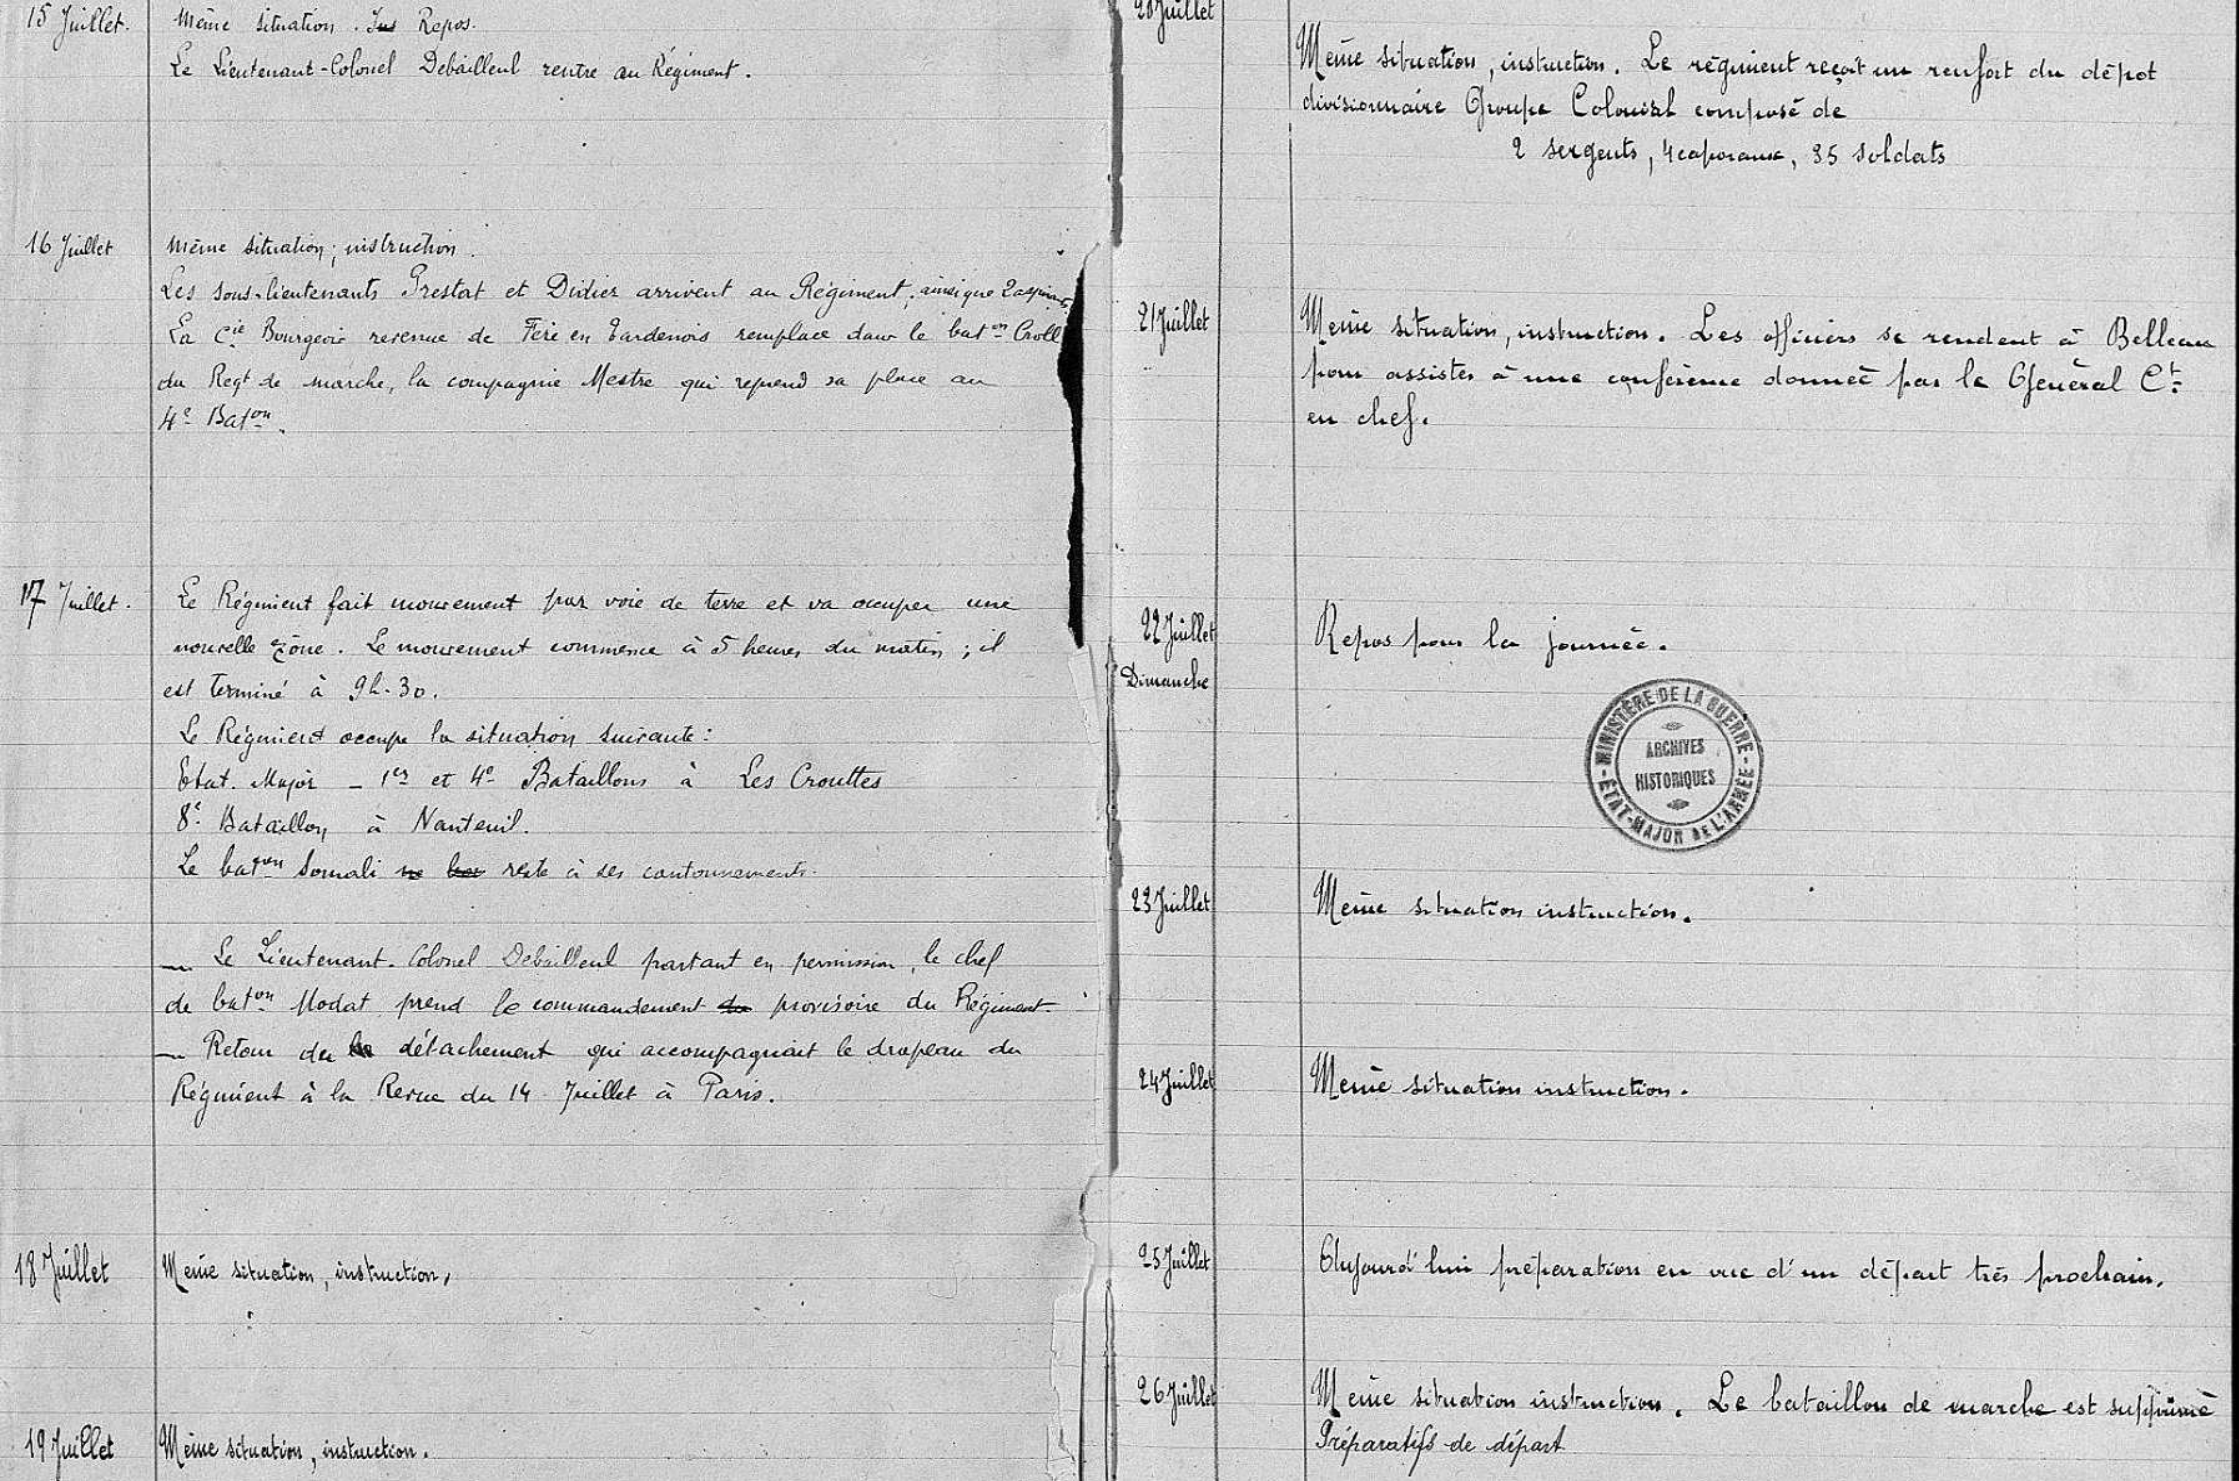 15 Juillet.
Même situation. Ins Repos.
Le Lieutenant-Colonel Debailleul rentre au Régiment.
16 Juillet
Même situation; instruction.
Les sous-lieutenants Prestat et Didier arrivent au Régiment, ainsi que 2 aspirants
La Cie Bourgeois revenue de Fère en Tardenois remplace dans le baton Croll
du Regt de marche, la compagnie Mestre qui reprend sa place au
4e Baton.
17 Juillet.
Le Régiment fait mouvement par voie de terre et va occuper une
nouvelle zône. Le mouvement commence à 5 heures du matin; il
est terminé à 9h-30.
Le Régiment occupe la situation suivante:
Etat-Major - 1er et 4e Bataillons à Les Crouttes
8e Bataillon à Nanteuil.
Le baton Somali ne reste à ses cantonnements.
- Le Lieutenant-Colonel Debailleul partant en permission, le chef
de baton Modat prend le commandement du provisoire du Régiment.
- Retour du la détachement qui accompagnait le drapeau du
Régiment à la Revue du 14 Juillet à Paris.
18 Juillet
Meme situation, instruction,
19 Juillet
Meme situation, instruction.
20 Juillet
Meme situation, instruction. Le régiment reçoit un renfort du dépot
divisionnaire Groupe Colonial composé de
2 sergents, 4 caporaux, 35 soldats
21 Juillet
Meme situation, instruction. Les officiers se rendent à Belleau
pour assister à une conférence donnée par le Général Ct
en chef.
22 Juillet
Dimanche
Repos pour la journée.
MINISTÈRE DE LA GUERRE
ARCHIVES
HISTORIQUES
ÉTAT-MAJOR DE L'ARMÉE
23 Juillet
Meme situation instruction.
24 Juillet
Meme situation instruction.
25 Juillet
Aujourd'hui préparation en vue d'un départ très prochain.
26 Juillet
Meme situation instruction. Le bataillon de marche est supprimé
Préparatifs de départ